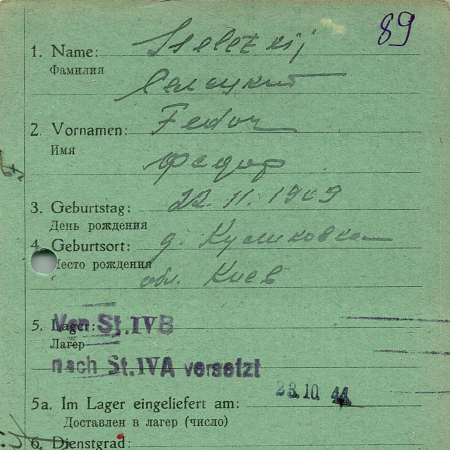 89
1. Name: Steletzkij
Фамилия Селецкий
2. Vornamen: Fedor
Имя Федор
3. Geburtstag: 22.11.1909
День рождения
4. Geburtsort: д. Куликовка
Место рождения обл. Киев
5. Lager: Von St. IVB
Лагерь
nach St. IVA versetzt
28.10 44
5a. Im Lager eingeliefert am:
Доставлен в лагерь (число)
6. Dienstgrad: